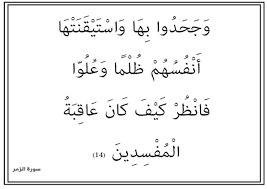 وَجَحَدُوا بِهَا وَاسْتَيْقَنَتْهَا
أَنْفُسُهُمْ ظُلْمًا وَعُلُوًّا
فَانْظُرْ كَيْفَ كَانَ عَاقِبَةُ
الْمُفْسِدِينَ (14)
سورة الزمر